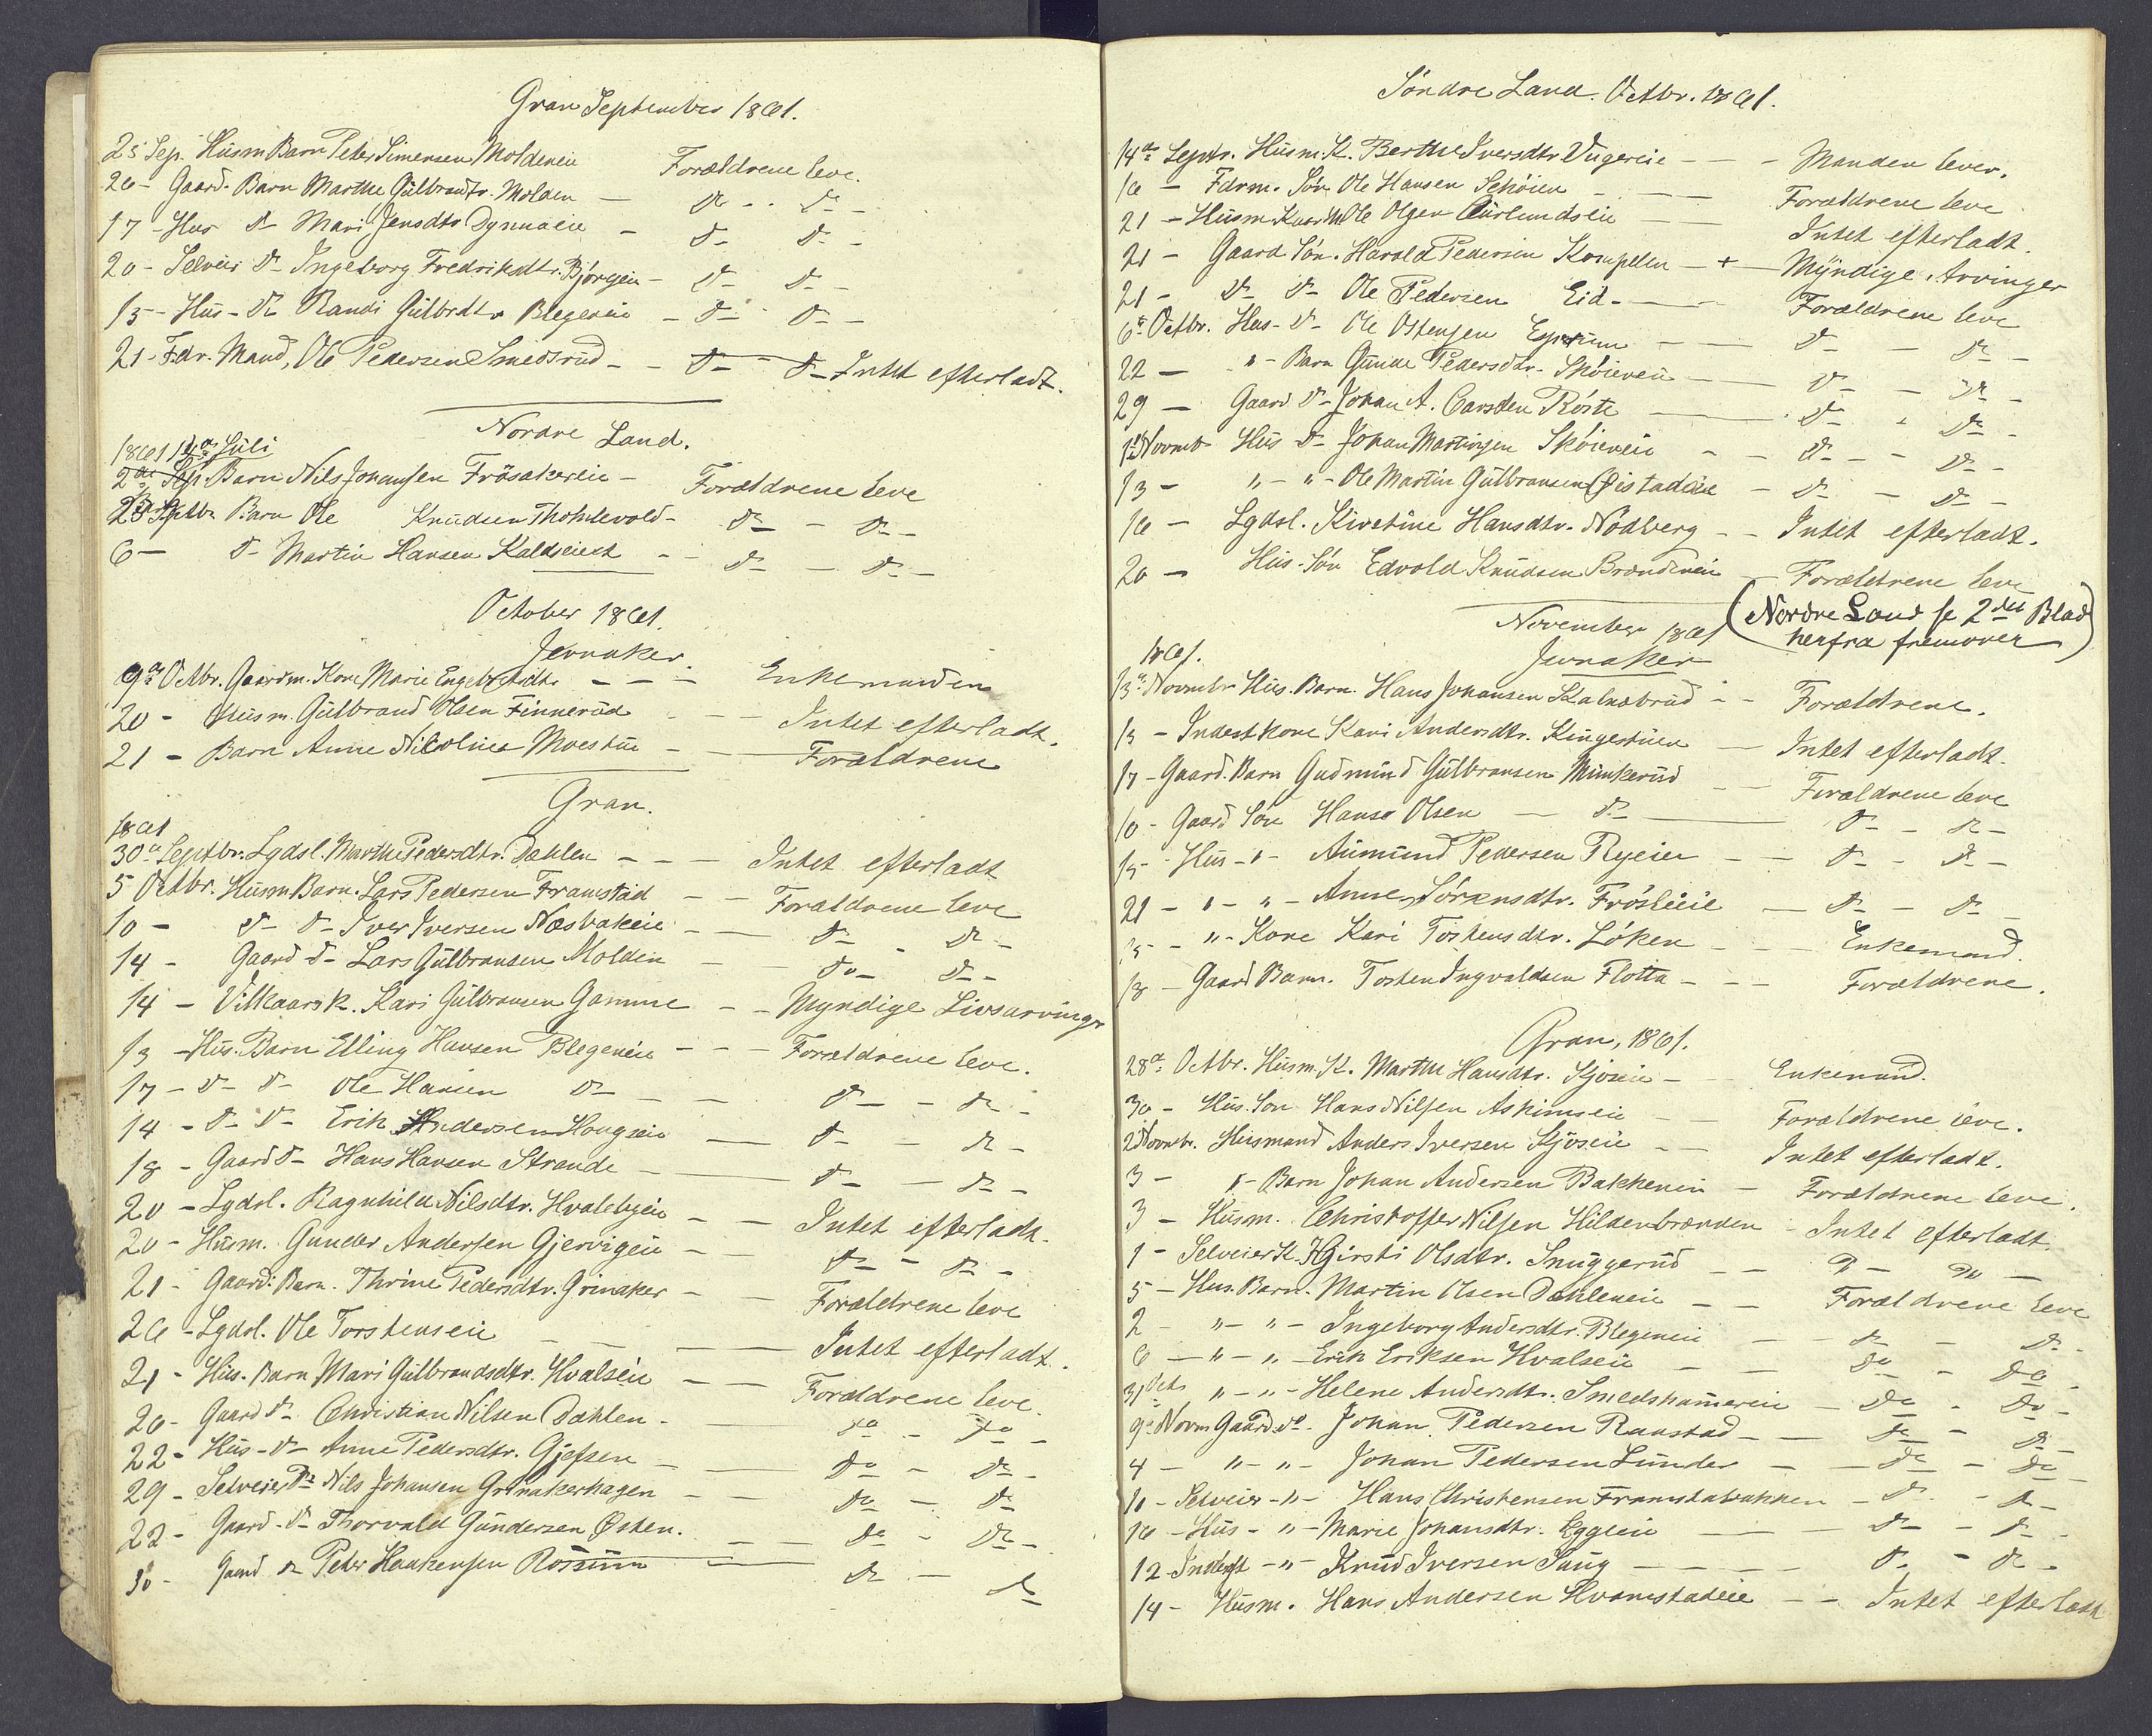 Gran September 1861.
25 Sep. Husm Barn Peter Simensen Moldeneie Forældrene leve.
20 - Gaard. Barn Marthe Gulbrandsdtr. Molden — do - - do -
17 - Hus do Mari Jensdtr Dynnaeie - do - do -
20 - Selveier do - Ingeborg Fredriksdtr. Bjørgeie - do - do -
15 - Hus - do Randi Gulbrdtr Blegeneie - do - do -
21 - Fdr. Mand, Ole Pedersen Smedsrud - - do - do - Intet efterladt.
Nordre Land.
1861 14de Juli
2den Sep. Barn Nils Johansen Frösakereie - Forældrene leve
28 Septbr Barn Ole Knudsen Thomlevold - do - do -
6 — do - Martin Hansen - - do - do -
October 1861.
Jevnaker.
9de Octbr. Gaardm. Kone Marie Engebretsdtr - - - Enkemanden
20 - Husm. Gulbrand Olsen Finnerud - - Intet efterladt.
21 - Barn Anne Nicoline Moestue - — Forældrene
Gran.
1861
30te Septbr. Lgdsl. Marthe Pedersdtr. Dæhlen - - - Intet efterladt
5 Octbr. Husm Barn. Lars Pedersen Framstad - - Forældrene leve
10 - do - do - Iver Iversen Næsbakeie - — do - do -
14 - Gaard do - Lars Gulbransen Molden — — do - do -
14 - Vilkaarsk. Kari Gulbransen Gamme - - Myndige Livsarvinger
13 - Hus. Barn Elling Hansen Blegeneie - - - Forældrene leve.
17 - do - do - Ole Hansen do - - — do - do -
14 - do - do - Erik Andersen Haugseie — do - do -
18 - Gaard do - Hans Hansen Strande - — do - do -
20 - Lgdsl. Ragnhild Nilsdtr. Hvalebyeie - - Intet efterladt.
20 - Husm. Gunder Andersen Gjervigeie - - do - do -
21 - Gaard. Barn. Thrine Pedersdtr. Grinaker - - Forældrene leve
26 - Lgdsl. Ole Torstenseie - - — Intet efterladt.
21 - Hus. Barn Mari Gulbrandsdtr. Hvalseie - — Forældrene leve.
20 - Gaard do - Christian Nilsen Dæhlen - — do - do -
22 - Hus - do - Anne Pedersdtr. Gjefsen - — do - do -
29 - Selveier do Nils Johansen Grinakerhagen - - do - do
22 - Gaard - do - Thorvald Gundersen Østen. - - do - do -
30 - Gaard do Peter Haakensen Rossum — do - do
Søndre Land. Octbr. 1861.
14de Septr. Husm. K. Berthe Iversdtr. Ungereie - - - Manden lever.
16 - Fdrm. Søn Ole Hansen Schøien - — Forældrene leve
21 - Husm Ole Olsen — Intet efterladt.
21 - Gaard Søn. Harald Pedersen Kompelien — + — Myndige Arvinger
21 - do - do - Ole Pedersen Eid - — Forældrene leve
6te Octbr. Hus - do - Ole Ostensen — — do - do -
22 — " - Barn Gunde Pedersdtr. Skøieneie — — do - do -
29 — Gaard do - Johan A. Carsten Röste — do - do -
1ste Novembr Hus - do - Johan Martinsen Skøieneie - - do - - do -
13 - " - " - Ole Martin Gulbransen - do - do -
16 - Lgdsl. Kirstine Hansdtr. Nødberg - - Intet efterladt.
20 - Hus - Søn Edvold Knudsen — Forældrene leve
(Nordre Land se 2det Blad
herfra fremover)
November 1861
1861. Jevnaker
13de Novembr Hus. Barn. Hans Johansen - - Forældrene.
15 - Inderst kone Kari Andersdtr. Kingestuen — Intet efterladt.
17 - Gaard. Barn Gudmund Gulbransen Munkerud - - Forældrene leve
10 - Gaard Søn Hans Olsen — do — do - do -
15 - Hus - " - Aumund Pedersen Ryeier - - do - do -
21 - " - " - Anne Sörensdtr. Frösleeie — do - do -
15 - " - Kone Kari Tostensdtr. Löken - - — Enkemand.
18 - Gaard Barn. Tosten Ingvaldsen Flotta - - - Forældrene.
Gran, 1861.
28de Octbr. Husm. K. Marthe Hansdtr. Kjoseie - - Enkemand.
30 - Hus. Søn Hans Nilsen Askimseie — Forældrene leve.
2 Novembr. Husmand Anders Iversen Kjoseie - - Intet efterladt.
3 - " - Barn Johan Andersen Bakkeneie - Forældrene leve.
3 - Husm. Christoffer Nilsen Hildenbrænden - Intet efterladt.
1 - Selveier K. Kjirsti Olsdtr. Snuggerud - - " - " -
5 - Hus. Barn. Martin Olsen Dæhleneie - - Forældrene leve
2 - " - " - Ingeborg Andersdtr. Blegeneie - - do - do -
6 - " - " - Erik Eriksen Hvalseie - - do - do -
31 Octr " - " - Helene Andersdtr. Smedshammereie - do - do -
9de Novm Gaard do. Johan Pedersen Raastad - - do - do -
4 - " - " - Johan Pedersen Lunder - - do - do -
10 - Selveier - " - Hans Christensen Framstabakken - do - do -
16 - Hus - " - Marie Johansdtr. Eggeeie — do - do -
12 - Inderst - " - Knud Iversen Saug - - - do - do -
14 - Husm. Hans Andersen Hvamstadeie - - Intet efterladt